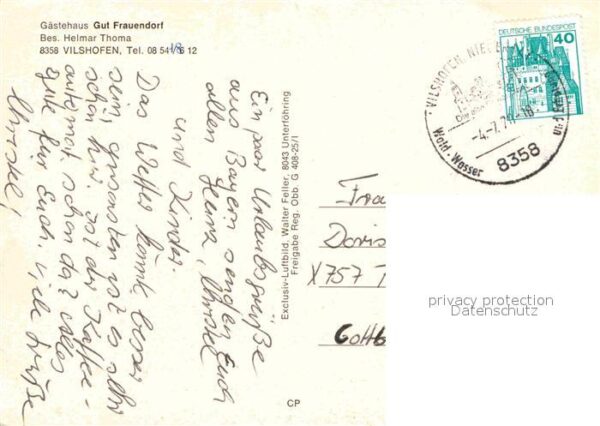 Gästehaus Gut Frauendorf
Bes. Helmar Thoma
8358 VILSHOFEN, Tel. 08 541/8 12
Ein paar Urlaubsgrüße
aus Bayern senden Euch
allen Heinz, Christel
und Kinder.
Das Wetter könnte besser
sein, ansonsten ist es sehr
schön hier. Ist der Kaffee-
automat schon da? Alles
gute für Euch. Viele Grüße
Christel!
Exclusiv-Luftbild, Walter Feller, 8043 Unterföhring
Freigabe Reg. Obb G 408-25/1
CP
DEUTSCHE BUNDESPOST
40
VILSHOFEN,
-4.-7.7
8358
Wald · Wasser
Frau
Doris
X757
Cottb
privacy protection
Datenschutz